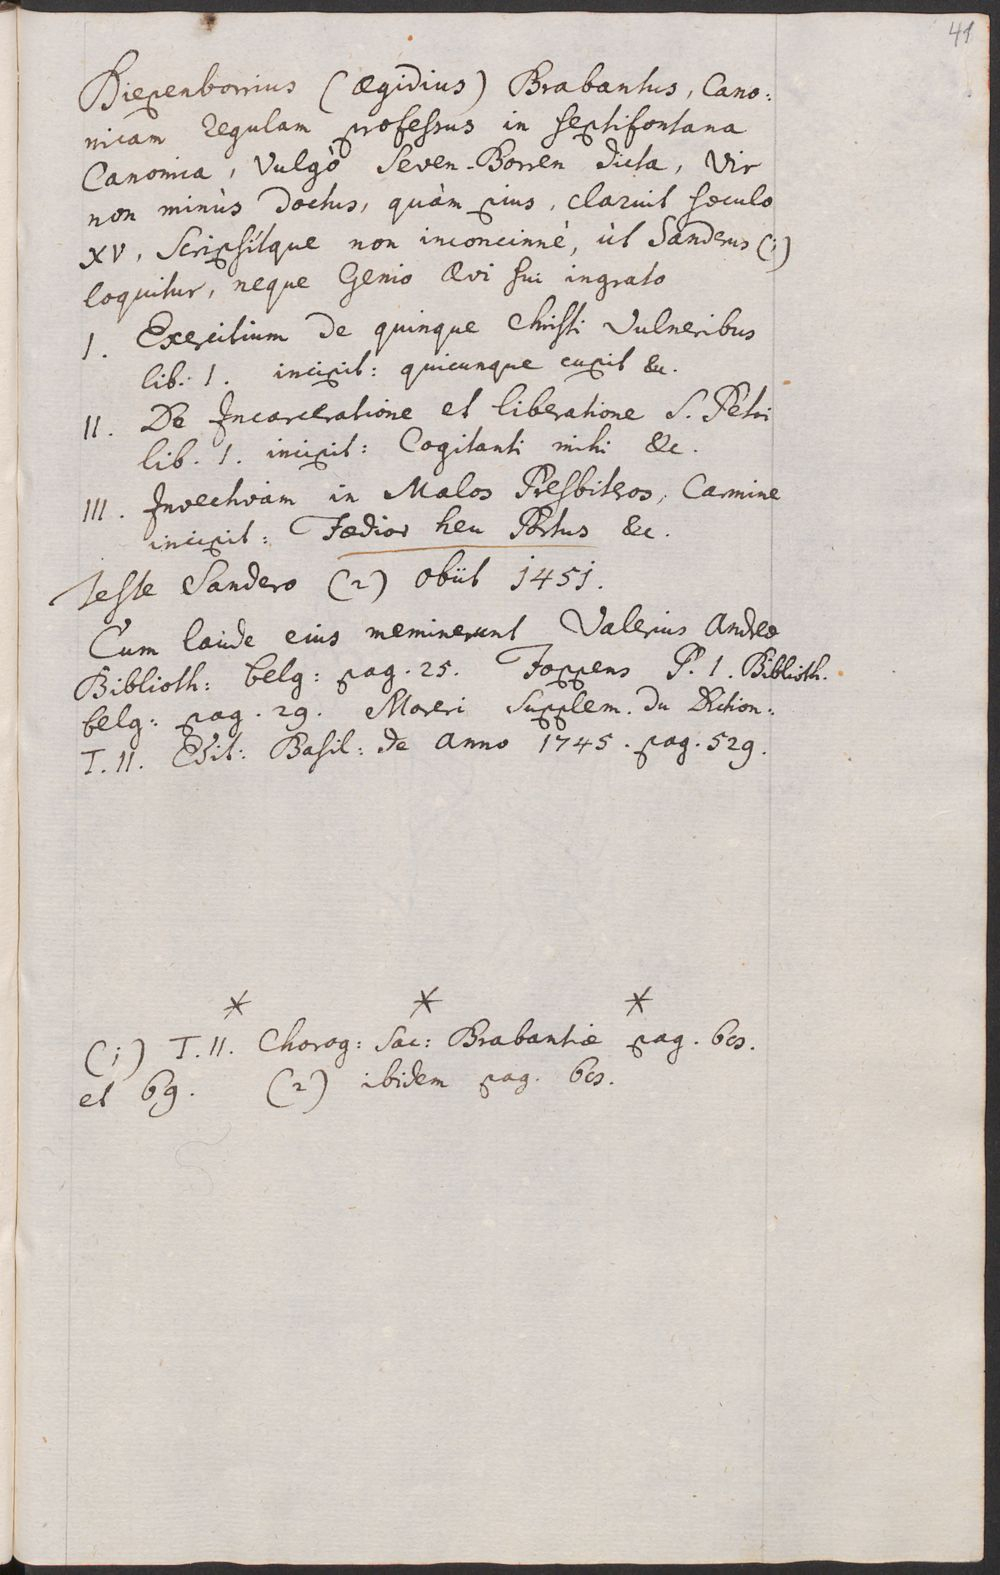 41
Biepenborrius (Ægidius) Brabantus, Cano:
nicam Regulam professus in septifontana
Canonia, Vulgò Seven-Borren dicta, Vir
non minùs doctus, quàm pius, claruit sæculo
XV, Scripsitque non inconcinnè, ùt Sanderus (1)
loquitur, neque Genio Ævi sui ingrato
I. Exercitium de quinque Christi Vulneribus
lib. I. incipit: quicunque cupit &c.
II. De Incarceratione et liberatione S. Petri
lib. I. incipit: Cogitanti mihi &c.
III. Invectivam in Malos Presbiteros, Carmine
incipit: Fædior heu Portus &c.
Teste Sandero (2) obiit 1451.
Cum laude eius meminerunt Valerius Andreæ
Biblioth: belg: pag. 25. Foppens P. I. Biblioth.
belg: pag. 29. Moreri Supplem. du Diction:
T. II. Edit: Basil: de anno 1745. pag. 529.
* * *
(1) T. II. Chorog: Sac: Brabantiæ pag. 68.
et 69. (2) ibidem pag. 68.